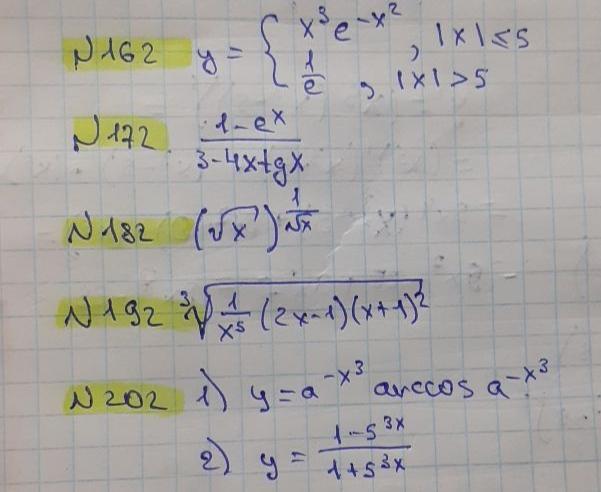 N162 y = { x³e^(-x²), |x| ≤ 5
1/e, |x| > 5
N172 (1-e^x)/(3-4x+gx)
N182 (√x)^(1/√x)
N192 ³√(1/x⁵ (2x-1)(x+1)²)
N202 1) y = a^(-x³) arccos a^(-x³)
2) y = (1-5^(3x))/(1+5^(3x))